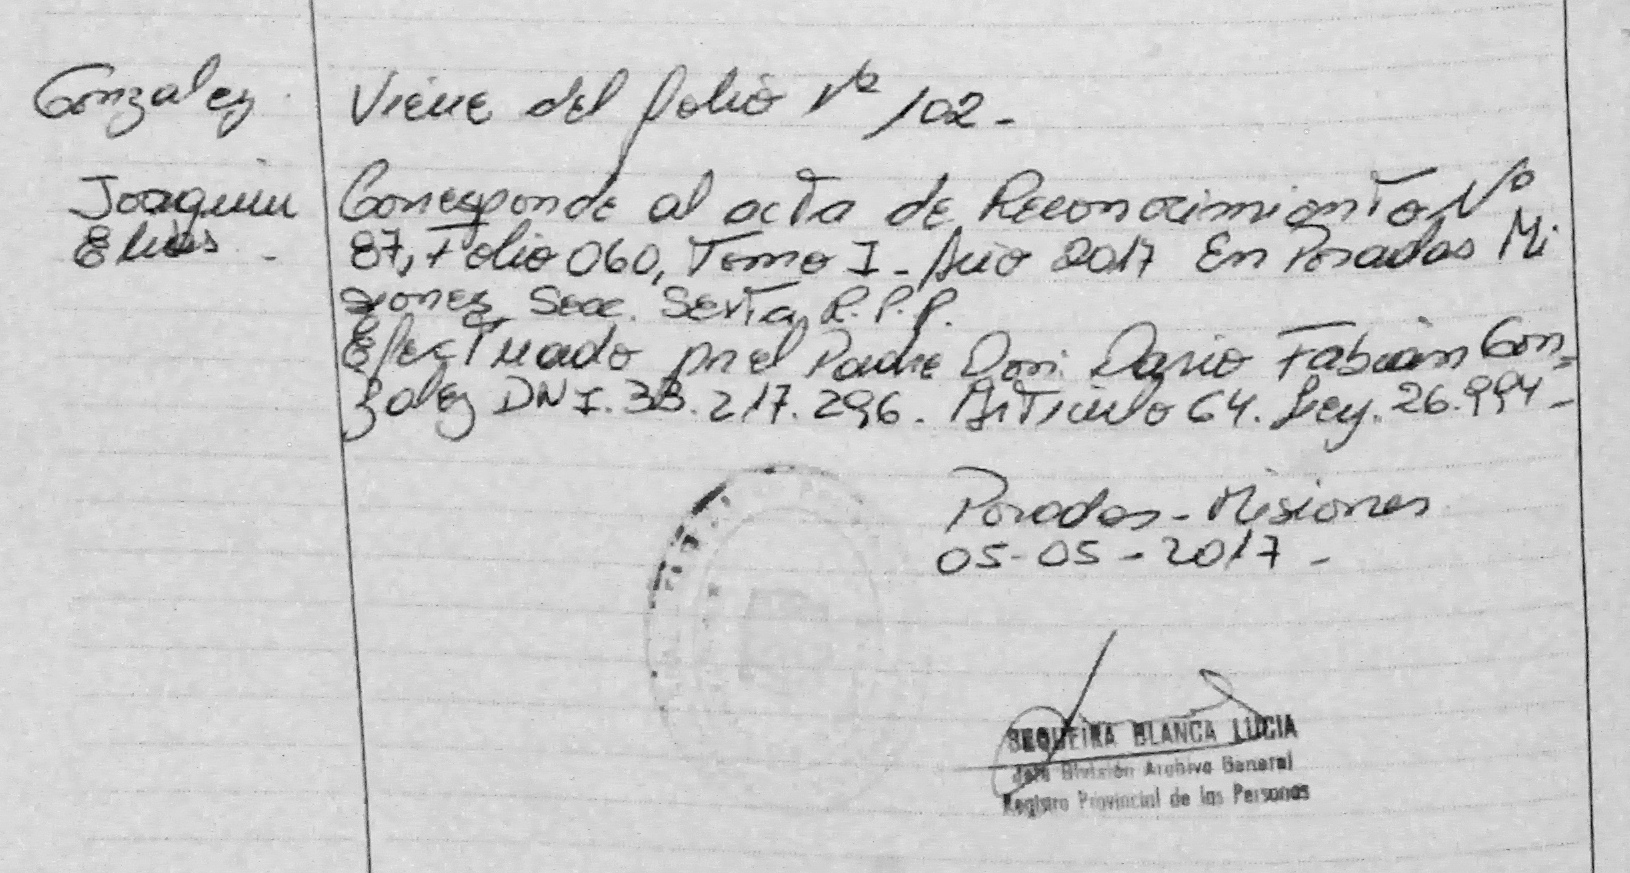 Gonzalez Viene del folio Nº 102-
Joaquin Corresponde al acta de Reconocimiento Nº
Elias - 87, Folio 060, Tomo I - Año 2017 En Posadas Mi
siones, Secc. Sexta, R.P.P.
Efectuado por el Padre Don: Dario Fabian Gon=
zalez DNI. 33.217.296. Articulo 64. Ley. 26.994-
Posadas - Misiones
05-05-2017-
SEQUEIRA BLANCA LUCIA
Jefe División Archivo General
Registro Provincial de las Personas